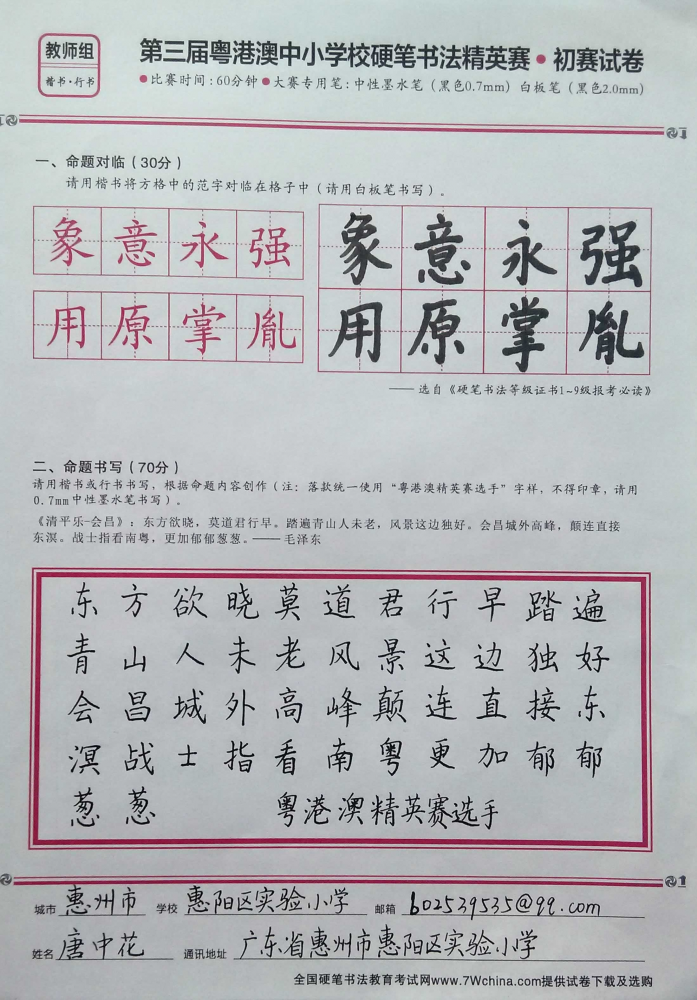 教师组
楷书·行书
第三届粤港澳中小学校硬笔书法精英赛·初赛试卷
●比赛时间:60分钟●大赛专用笔:中性墨水笔(黑色0.7mm)白板笔(黑色2.0mm)
一、命题对临(30分)
请用楷书将方格中的范字对临在格子中(请用白板笔书写)。
象意永强
用原掌胤
象意永强
用原掌胤
——选自《硬笔书法等级证书1~9级报考必读》
二、命题书写(70分)
请用楷书或行书书写,根据命题内容创作(注:落款统一使用“粤港澳精英赛选手”字样,不得印章,请用
0.7mm中性墨水笔书写)。
《清平乐-会昌》:东方欲晓,莫道君行早。踏遍青山人未老,风景这边独好。会昌城外高峰,颠连直接
东溟。战士指看南粤,更加郁郁葱葱。——毛泽东
东方欲晓莫道君行早踏遍
青山人未老风景这边独好
会昌城外高峰颠连直接东
溟战士指看南粤更加郁郁
葱葱 粤港澳精英赛选手
城市 惠州市 学校 惠阳区实验小学 邮箱 602539535@qq.com
姓名 唐中花 通讯地址 广东省惠州市惠阳区实验小学
全国硬笔书法教育考试网www.7Wchina.com提供试卷下载及选购